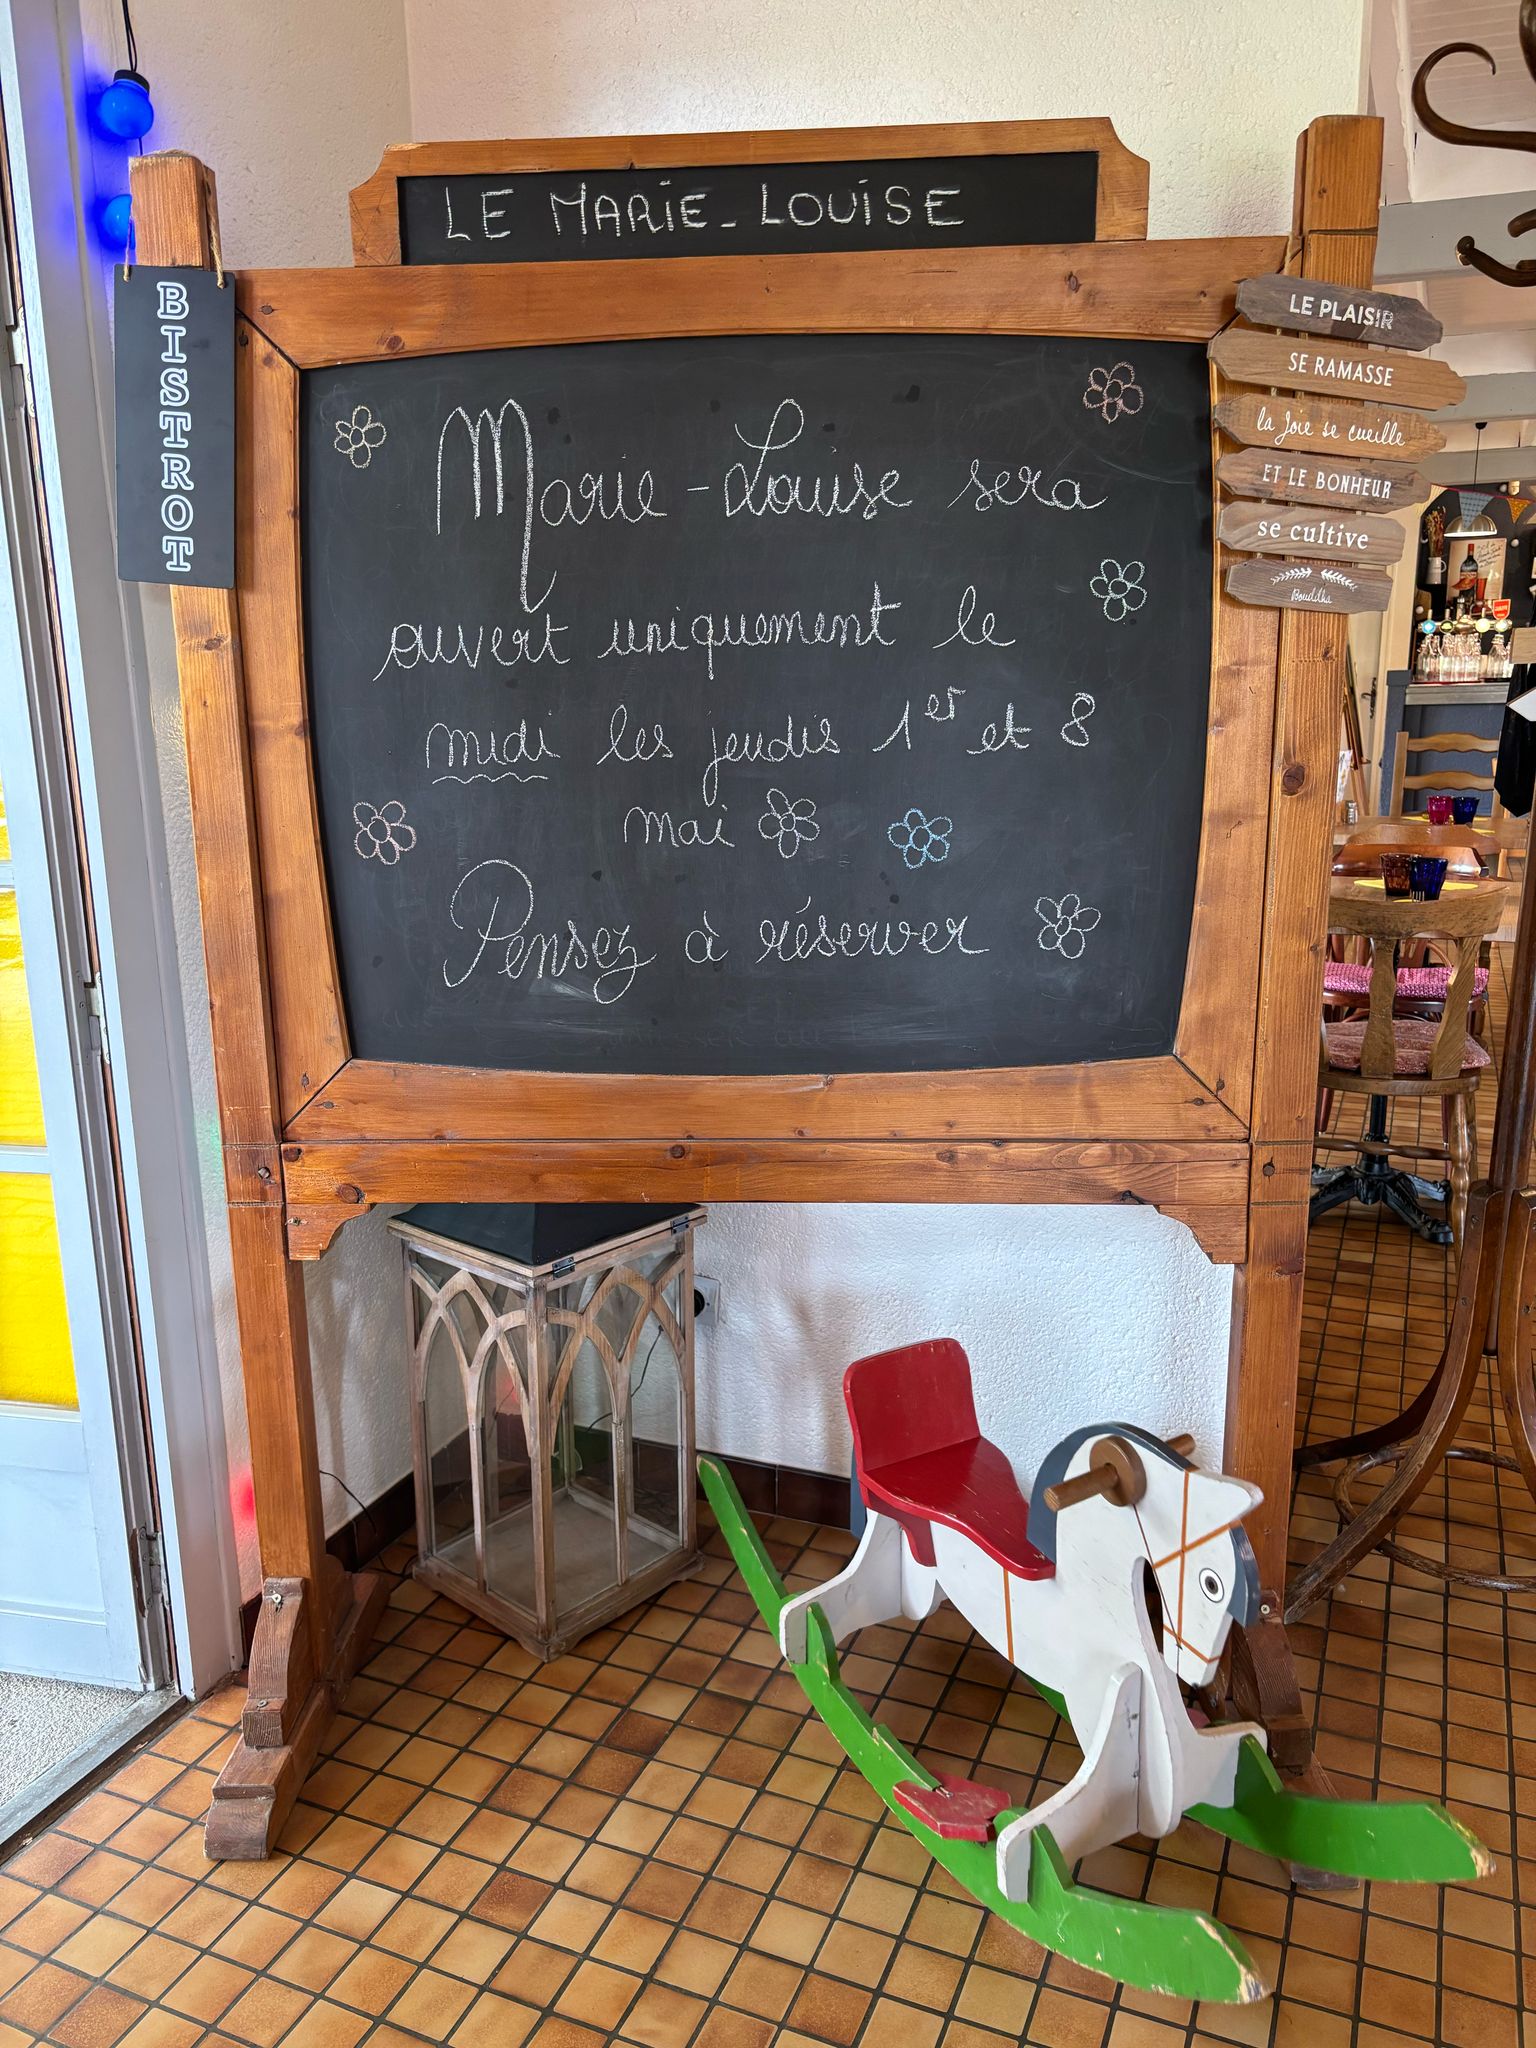 LE MARIE-LOUISE
BISTROT
Marie-Louise sera
ouvert uniquement le
midi les jeudis 1er et 8
mai
Pensez à réserver
LE PLAISIR
SE RAMASSE
la Joie se cueille
ET LE BONHEUR
se cultive
Bouddha